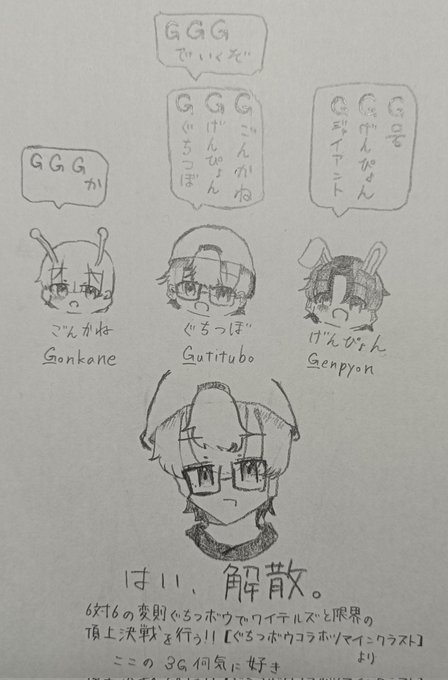 GGG
か
GGG
でいくぞ
Gごんかね
Gげんぴょん
Gぐちつぼ
G号
Gげんぴょん
Gジャイアント
ごんかね
Gonkane
ぐちつぼ
Gutitubo
げんぴょん
Genpyon
はい、解散。
6対6の変則ぐちつボウでワイテルズと限界の
頂上決戦を行う!!【ぐちつボウコラボ/マインクラフト】
より
ここの3G何気に好き